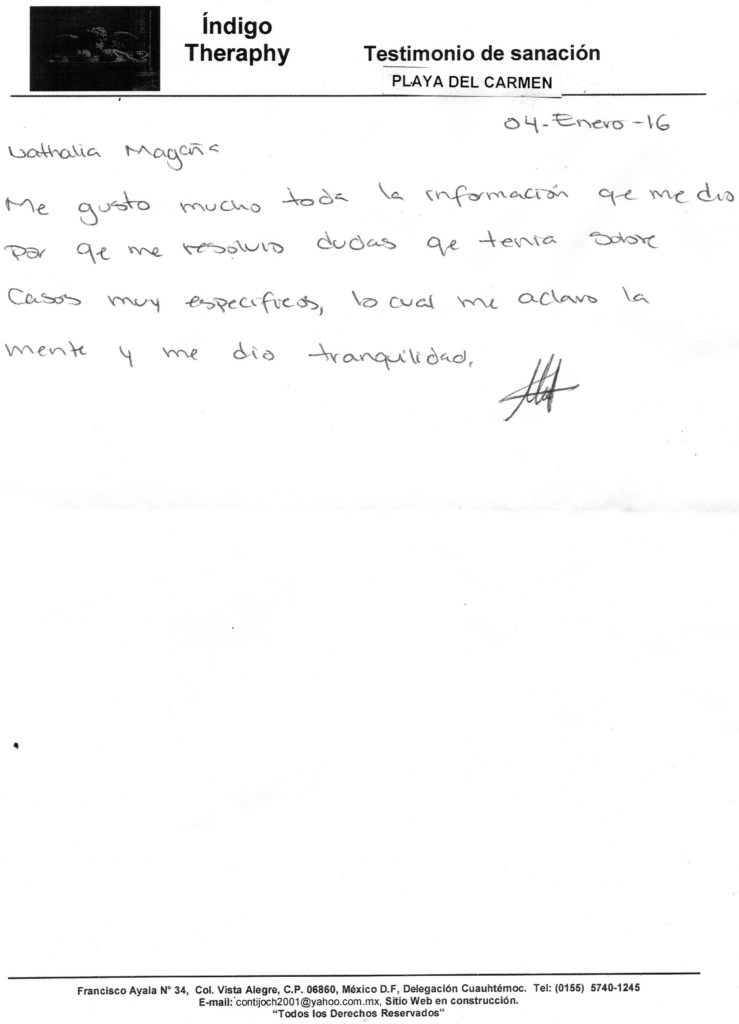 Índigo
Theraphy
Testimonio de sanación
PLAYA DEL CARMEN
04-Enero-16
Nathalia Magaña
Me gusto mucho toda la información qe me dio
Por qe me resolvio dudas qe tenia sobre
Casos muy especificos, lo cual me aclaro la
mente y me dio tranquilidad.
Francisco Ayala N° 34, Col. Vista Alegre, C.P. 06860, México D.F, Delegación Cuauhtémoc. Tel: (0155) 5740-1245
E-mail: contijoch2001@yahoo.com.mx, Sitio Web en construcción.
"Todos los Derechos Reservados"